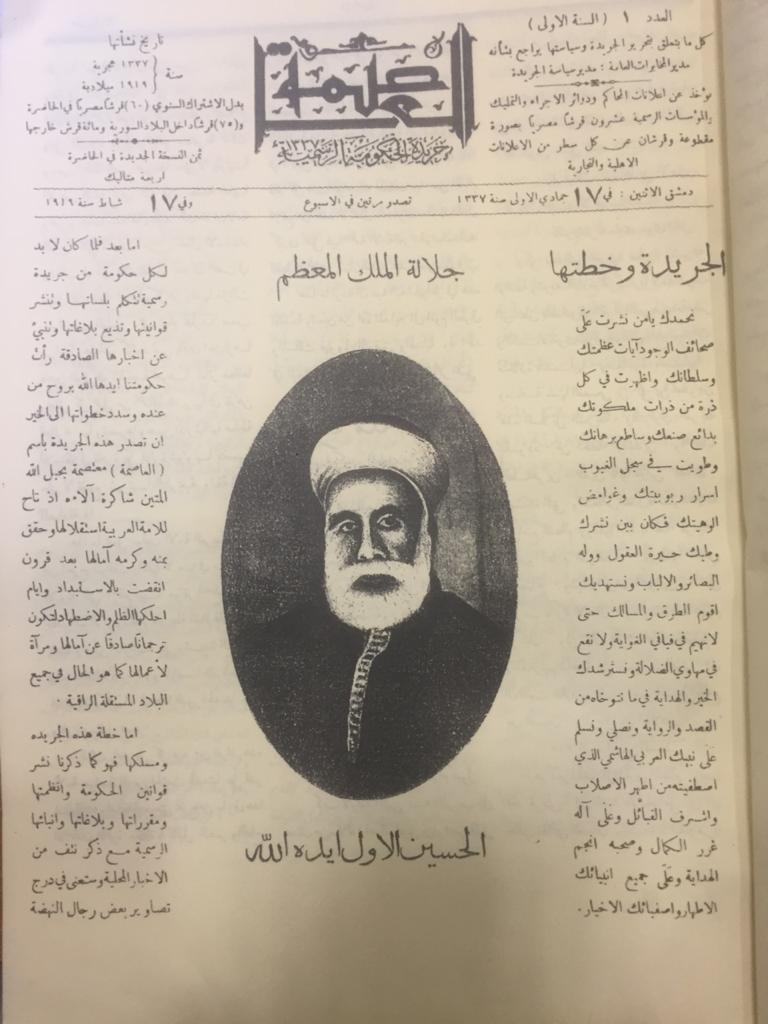 العدد ١ (السنة الاولى)
كل ما يتعلق بتحرير الجريدة وسياستها يراجع بشأنه
مدير المخابرات العامة : مدير سياسة الجريدة
يؤخذ عن اعلانات المحاكم ودوائر الاجراء والتمليك
والمؤسسات الرسمية عشرون قرشاً مصرياً بصورة
مقطوعة وقرشان عن كل سطر من الاعلانات
الاهلية والتجارية
العاصمة
جريدة الحكومة الرسمية
تاريخ نشأتها
سنة
١٣٣٧ هجرية
١٩١٩ ميلادية
بدل الاشتراك السنوي (٦٠) قرشاً مصرياً في الحاضرة
و(٧٥) قرشاً داخل البلاد السورية ومائة قرش خارجها
ثمن النسخة الجديدة في الحاضرة
اربعة متاليك
دمشق الاثنين : في ١٧ جمادي الاولى سنة ١٣٣٧
تصدر مرتين في الاسبوع
وفي ١٧ شباط سنة ١٩١٩
الجريدة وخطتها
نحمدك يا من نشرت على
صحائف الوجود آيات عظمتك
وسلطانك واظهرت في كل
ذرة من ذرات ملكوتك
بدائع صنعك وساطع برهانك
وطويت في سجل الغيوب
اسرار ربوبيتك وغوامض
الوهيتك فكان بين نشرك
وطيك حيرة العقول ووله
البصائر والالباب ونستهديك
اقوم الطرق والمسالك حتى
لا نهيم في فيافي الغواية ولا نقع
في مهاوي الضلالة ونسترشدك
الخير والهداية في ما نتوخاه من
القصد والرواية ونصلي ونسلم
على نبيك العربي الهاشمي الذي
اصطفيته من اطهر الاصلاب
واشرف القبائل وعلى آله
غرر الكمال وصحبه انجم
الهداية وعلى جميع انبيائك
الاطهار واصفيائك الاخيار.
جلالة الملك المعظم
الحسين الاول ايده الله
اما بعد فلما كان لا بد
لكل حكومة من جريدة
رسمية تتكلم بلسانها وتنشر
قوانينها وتذيع بلاغاتها وتنبئ
عن اخبارها الصادقة رأت
حكومتنا ايدها الله بروح من
عنده وسدد خطواتها الى الخير
ان تصدر هذه الجريدة باسم
( العاصمة ) معتصمة بحبل الله
المتين شاكرة آلاءه اذ تاح
للامة العربية استقلالها وحقق
بمنه وكرمه آمالها بعد قرون
انقضت بالاستبداد وايام
احلكها الظلم والاضطهاد لتكون
ترجماناً صادقاً عن آمالها ومرآة
لاعمالها كما هو الحال في جميع
البلاد المستقلة الراقية .
اما خطة هذه الجريده
ومسلكها فهو كما ذكرنا نشر
قوانين الحكومة وانظمتها
ومقرراتها وبلاغاتها وانبائها
الرسمية مع ذكر نتف من
الاخبار المحلية وستعنى في درج
تصاوير بعض رجال النهضة